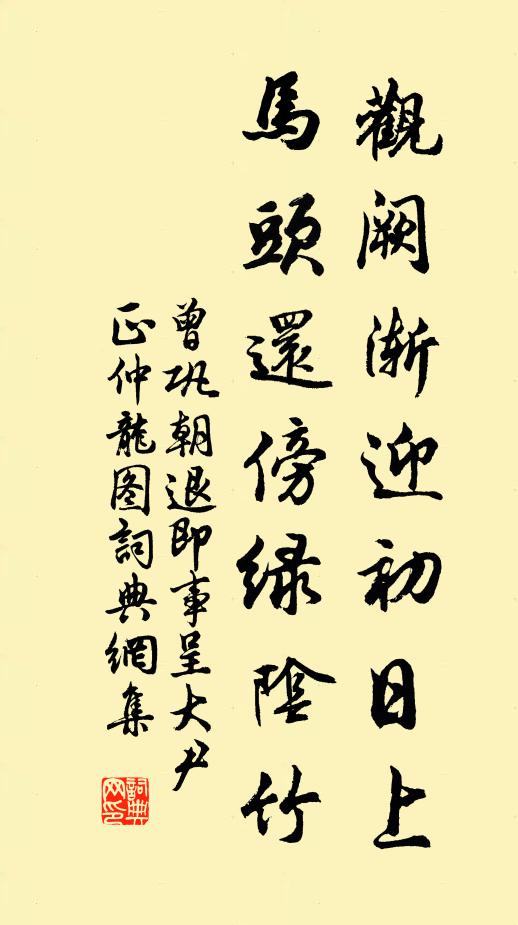 觀闕漸迎初日上
馬頭還傍綠陰竹
曾巩朝退即事呈大尹
正仲龍图詞典網集
詞典网印